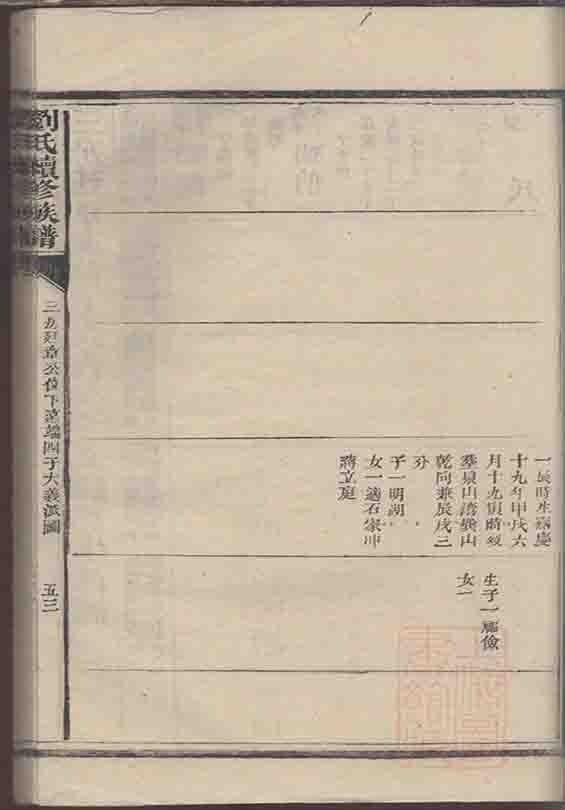 一辰時生嘉慶
十九年甲戌六
月十九寅時歿
葬泉山灣巽山
乾向兼辰戌三
分
子一明湖
女一適石家冲
蔣立庭
生子一 儉
女一
劉氏續修族譜
三 章公位下 端四子大義派圖
五三